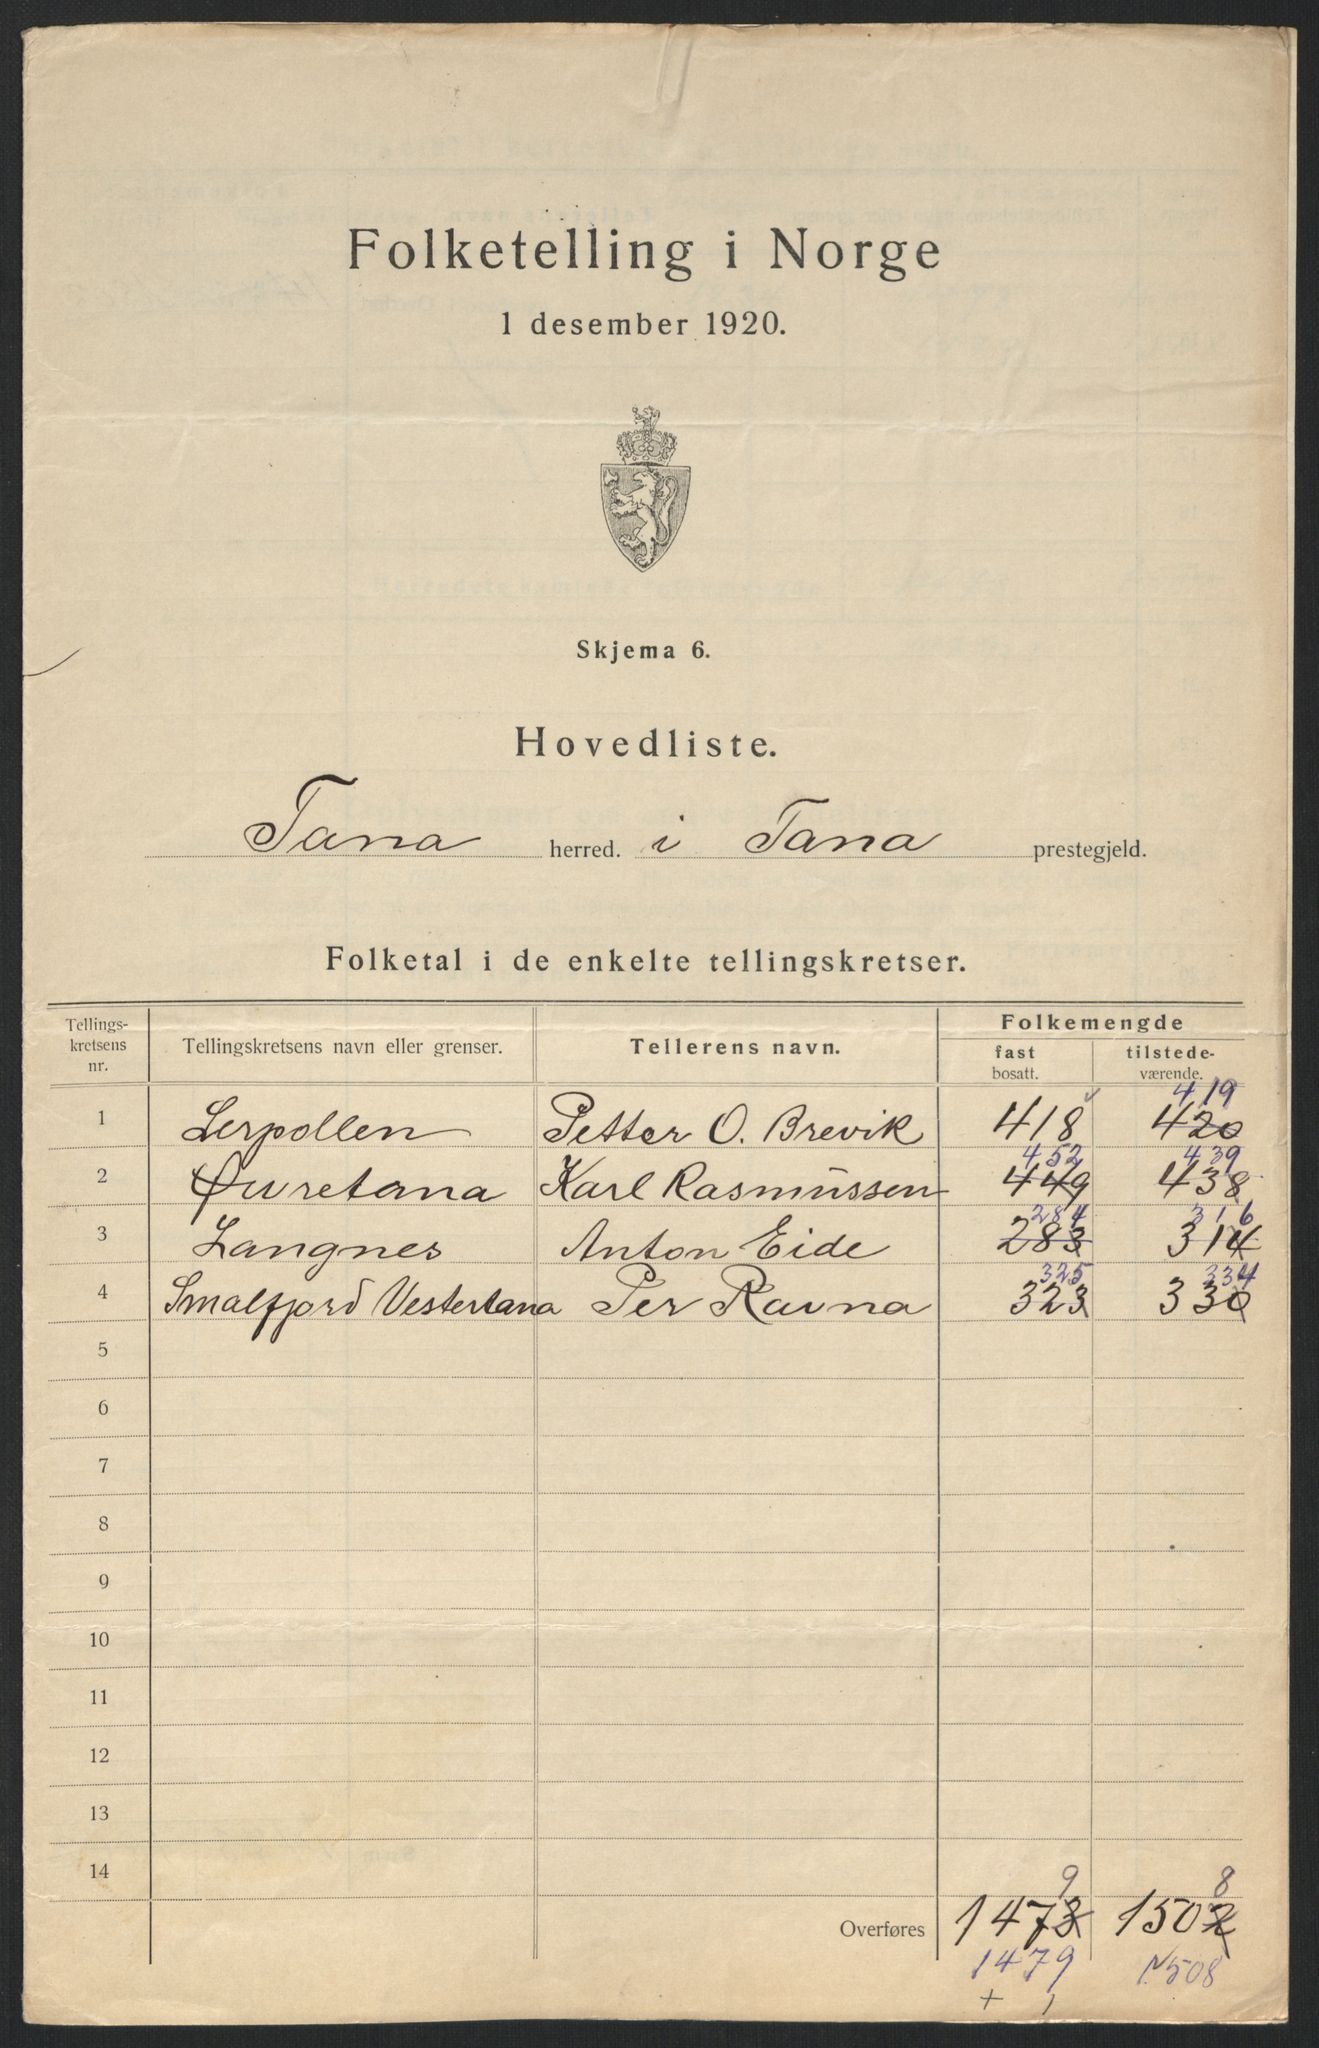 Folketelling i Norge
1 desember 1920.
Skjema 6.
Hovedliste.
Tana herred. i Tana prestegjeld.
Folketal i de enkelte tellingskretser.
Tellings-
kretsens
nr.
Tellingskretsens navn eller grenser.
Tellerens navn.
Folkemengde
fast
bosatt.
tilstede-
værende.
419
1 Lerpollen Petter O. Brevik 418 420
452 439
2 Øvretana Karl Rasmussen 449 438
284 316
3 Langnes Anton Eide 283 314
325 334
4 Smalfjord Vestertana Per Ravna 323 330
5
6
7
8
9
10
11
12
13
14
9 8
Overføres 1473 1502
1479 1508